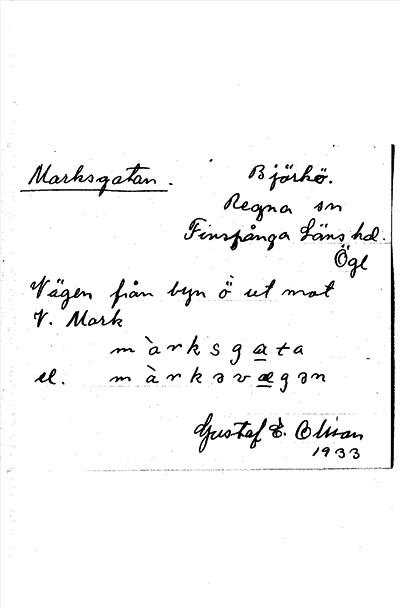 Marksgatan. Björkö.
Regna sn
Finspånga Läns hd.
Ögl
Vägen från byn ö ut mot
V. Mark
màrksgata
el. màrkəvægən
Gustaf E. Olsson
1933